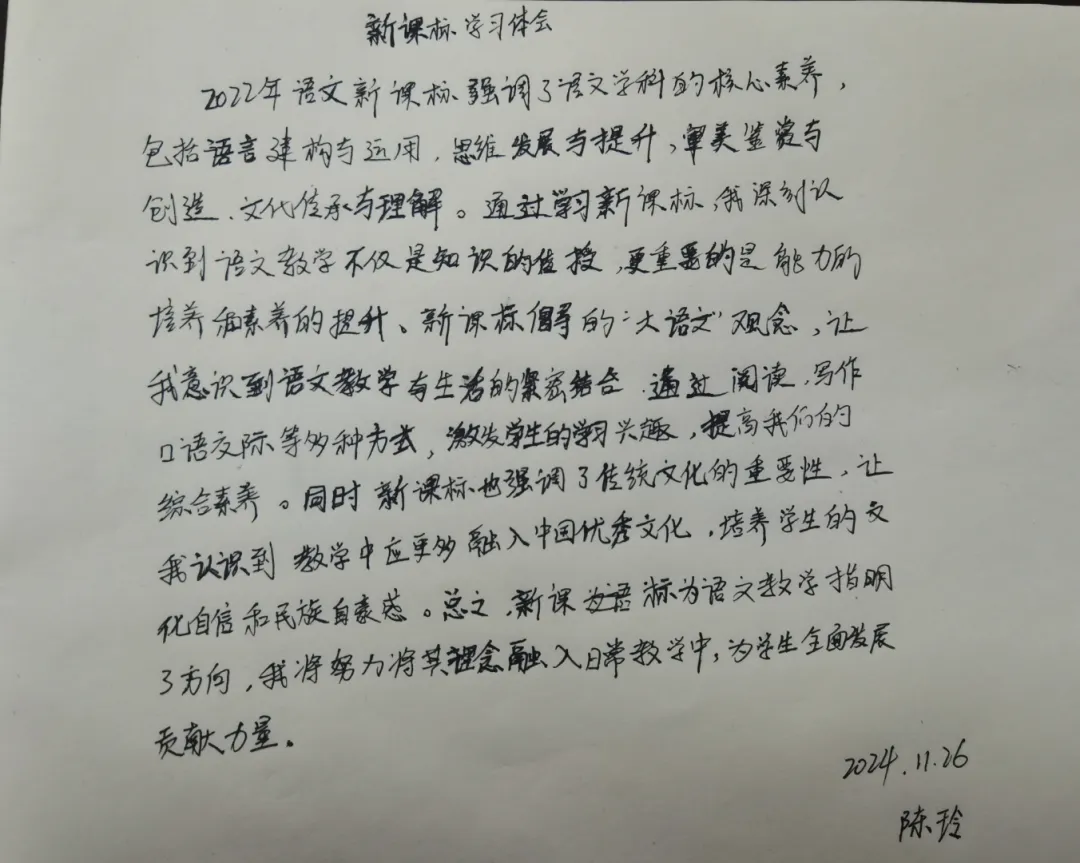 新课标学习体会
2022年语文新课标强调了语文学科的核心素养，
包括语言建构与运用，思维发展与提升，审美鉴赏与
创造、文化传承与理解。通过学习新课标，我深刻认
识到语文教学不仅是知识的传授，更重要的是能力的
培养和素养的提升、新课标倡导的“大语文”观念，让
我意识到语文教学与生活的紧密结合，通过阅读，写作
口语交际等多种方式，激发学生的学习兴趣，提高我们的
综合素养。同时新课标也强调了传统文化的重要性，让
我认识到教学中应更多融入中国优秀文化，培养学生的文
化自信和民族自豪感。总之，新课标为语文教学指明
了方向，我将努力将其理念融入日常教学中，为学生全面发展
贡献力量。
2024.11.26
陈玲